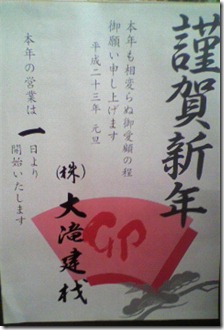 謹賀新年
本年も相変らぬ御愛顧の程
御願い申し上げます
平成二十三年 元旦
本年の営業は
一日より
開始いたします
(株)大滝建材